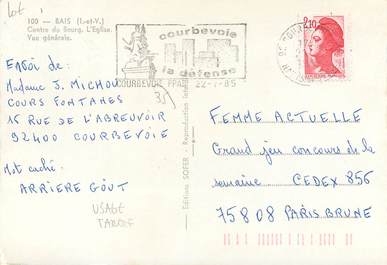 Lot
100 - BAIS (I.-et-V.)
Centre du Bourg. L'Eglise.
Vue générale.
courbevoie
la défense
COURBEVOIE PPAL
22-1-85
2,10
Envoi de :
Madame J. MICHOU
COURS FONTANES
15 RUE DE L'ABREUVOIR
92400 COURBEVOIE
Mot caché :
ARRIERE GOÛT
USAGE
TARDIF
35
Editions SOFER - Reproduction
FEMME ACTUELLE
Grand jeu concours de la
semaine CEDEX 856
75808 PARIS BRUNE